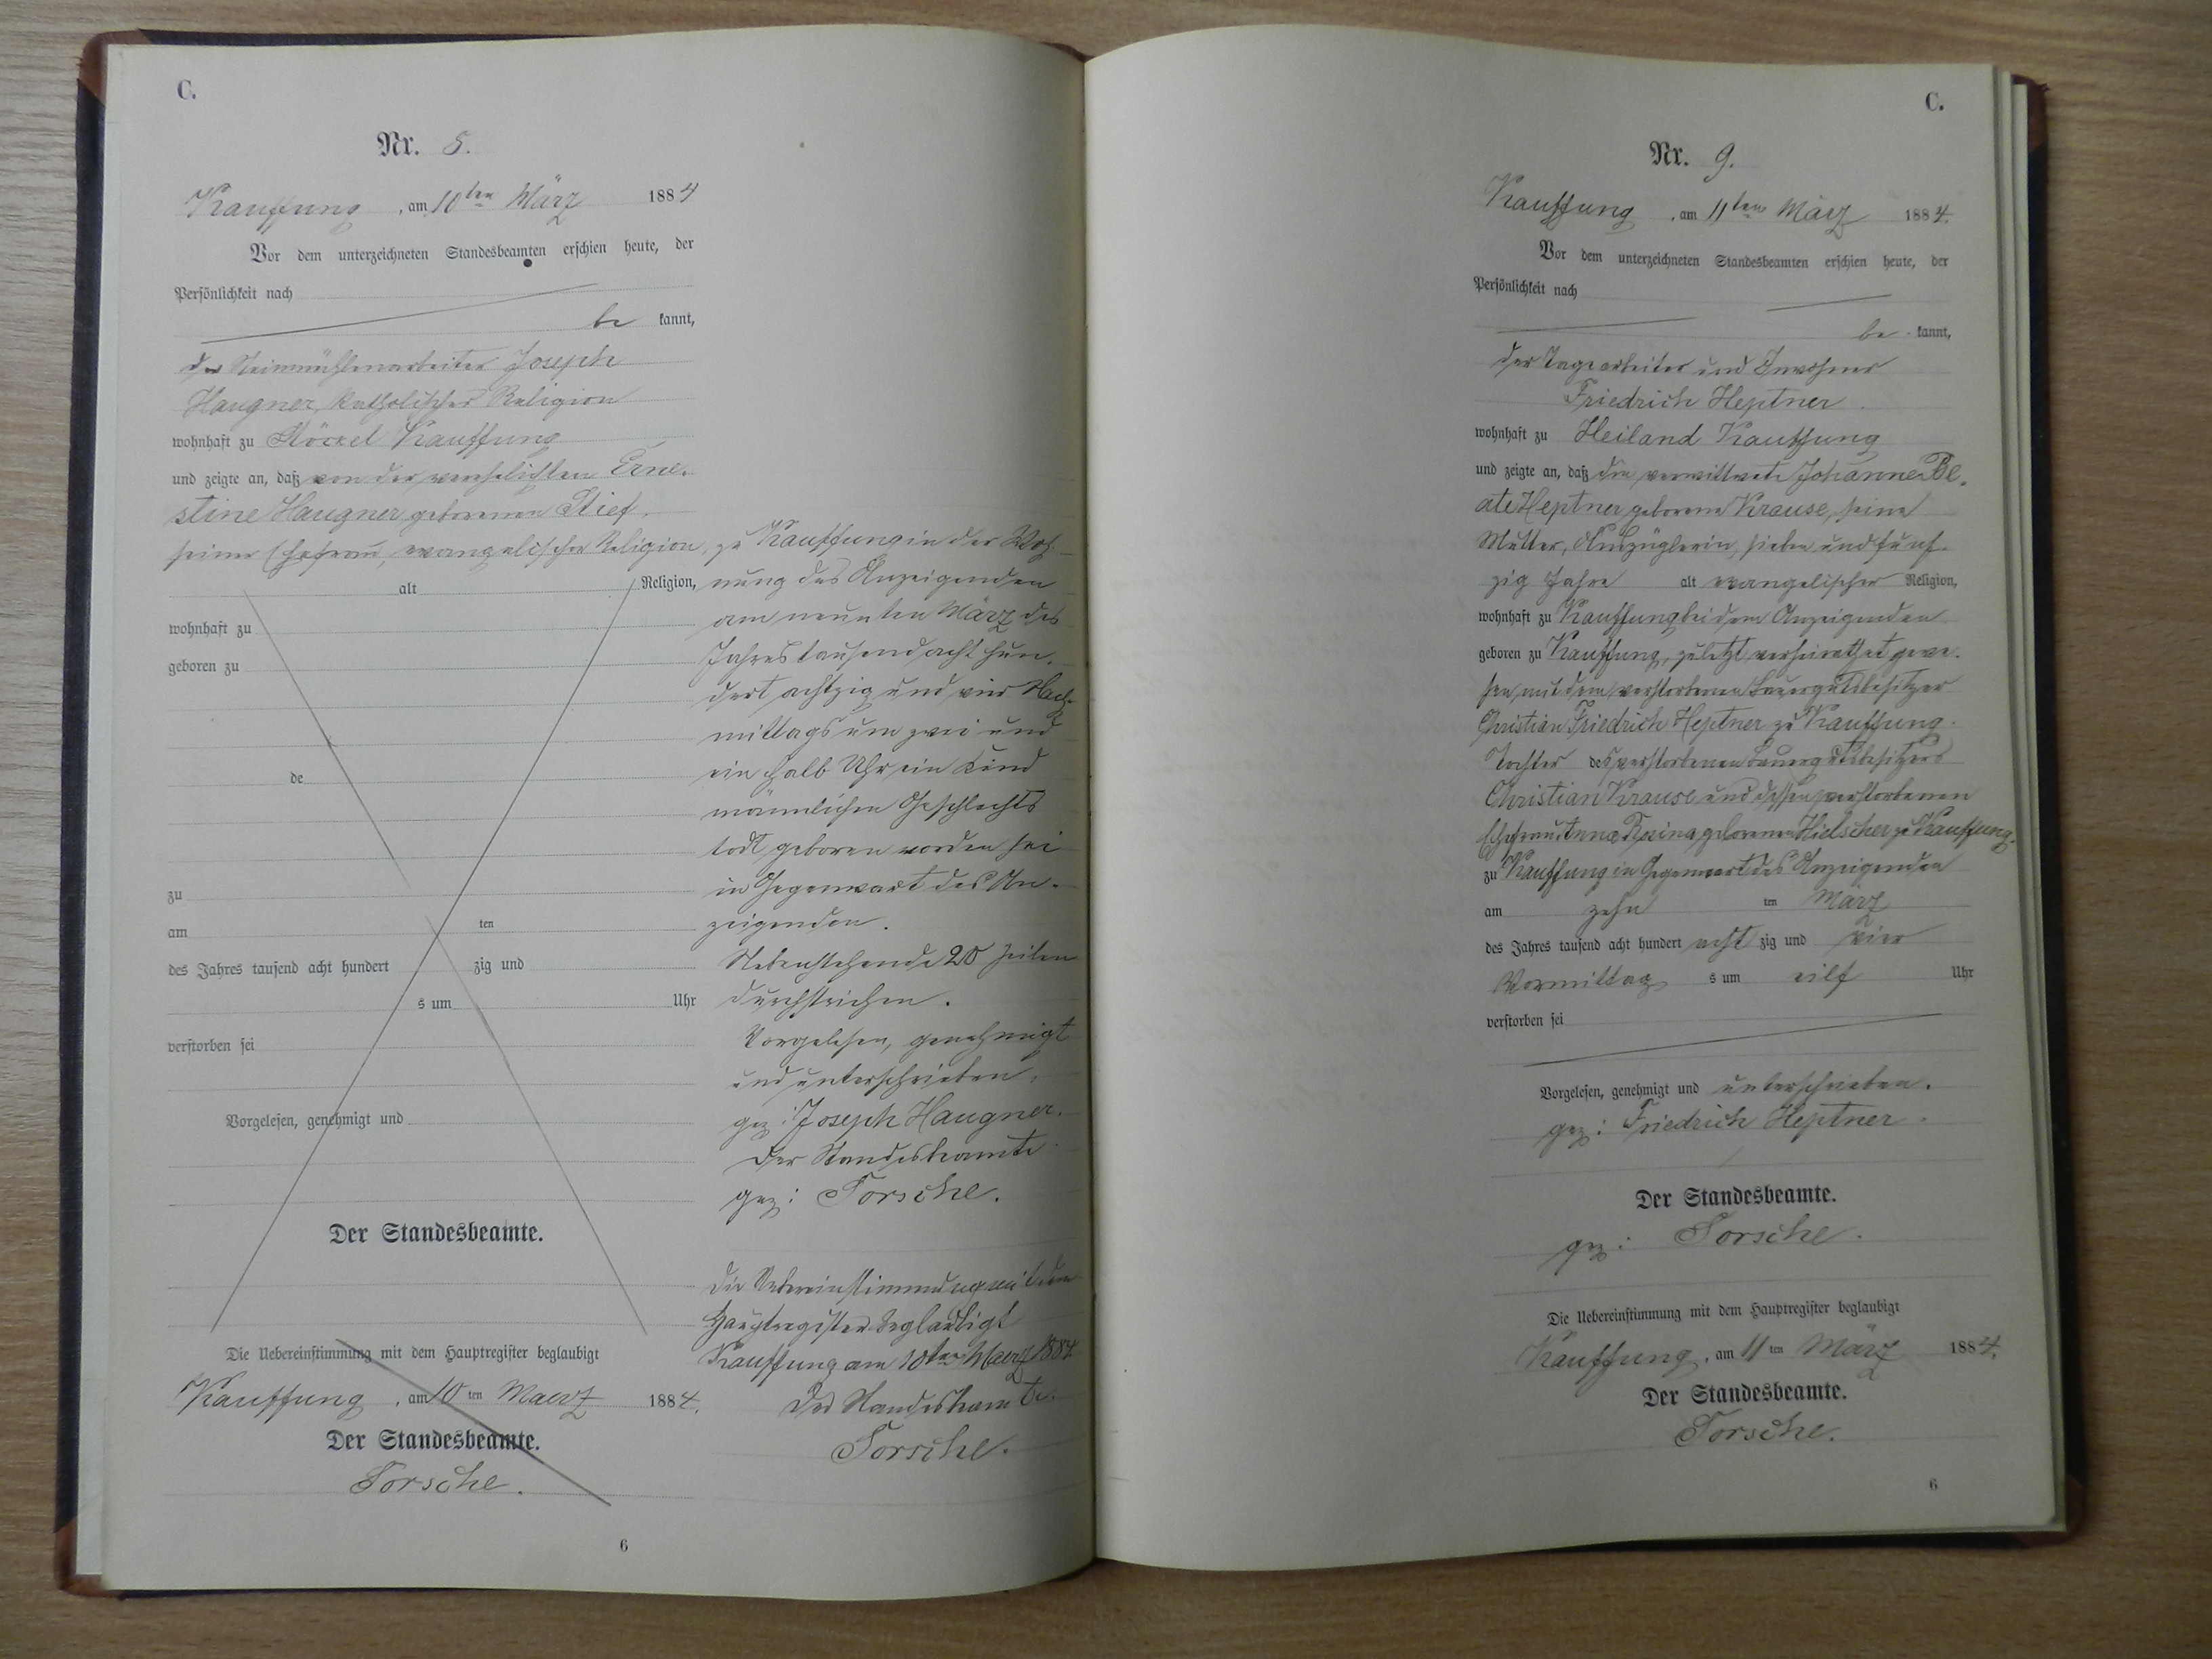 C.
Nr. 8.
Kauffung, am 10ten März 1884
Vor dem unterzeichneten Standesbeamten erschien heute, der
Persönlichkeit nach
be kannt,
der Steinmühlenarbeiter Joseph
Haugner, katholischer Religion
wohnhaft zu Röckel Kauffung
und zeigte an, daß von der verehelichten Erne-
stine Haugner geborenen Stief,
seiner Ehefrau, evangelischer Religion,
alt Religion,
wohnhaft zu
geboren zu
de
zu
am ten
des Jahres tausend acht hundert zig und
s um Uhr
verstorben sei
Vorgelesen, genehmigt und
Der Standesbeamte.
Die Uebereinstimmung mit dem Hauptregister beglaubigt
Kauffung, am 10 ten Maerz 1884.
Der Standesbeamte.
Torsche.
6
zu Kauffung in der Woh-
nung des Anzeigenden
am neunten März des
Jahres tausend acht hun-
dert achtzig und vier Nach-
mittags um zwei und
ein halb Uhr ein Kind
männlichen Geschlechts
todt geboren worden sei
in Gegenwart des An-
zeigenden.
Nebenstehende 20 Zeilen
durchstrichen.
Vorgelesen, genehmigt
und unterschrieben.
gez: Joseph Haugner.
Der Standesbeamte
gez: Torsche.
Die Uebereinstimmung mit dem
Hauptregister beglaubigt
Kauffung am 10ten Maerz 1884
Der Standesbeamte.
Torsche.
C.
Nr. 9.
Kauffung, am 11ten März 1884.
Vor dem unterzeichneten Standesbeamten erschien heute, der
Persönlichkeit nach
be kannt,
der Tagearbeiter und Inwohner
Friedrich Heptner
wohnhaft zu Heiland Kauffung
und zeigte an, daß die verwittwete Johanne Be-
ate Heptner geborene Krause, seine
Mutter, Auszüglerin, sieben und fünf-
zig Jahre alt evangelischer Religion,
wohnhaft zu Kauffung bei dem Anzeigenden
geboren zu Kauffung, zuletzt verheirathet gewe-
sen mit dem verstorbenen Bauergutsbesitzer
Christian Friedrich Heptner zu Kauffung.
Tochter des verstorbenen Bauergutsbesitzers
Christian Krause und dessen verstorbenen
Ehefrau Anna Rosina geborenen Hielscher zu Kauffung.
zu Kauffung in Gegenwart des Anzeigenden
am zehn ten März
des Jahres tausend acht hundert acht zig und vier
Vormittag s um eilf Uhr
verstorben sei
Vorgelesen, genehmigt und unterschrieben.
gez: Friedrich Heptner.
Der Standesbeamte.
gez: Torsche.
Die Uebereinstimmung mit dem Hauptregister beglaubigt
Kauffung, am 11 ten März 1884.
Der Standesbeamte.
Torsche.
6